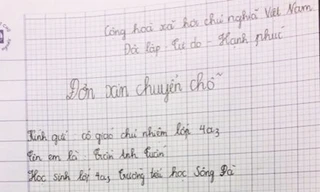 Cộng hoà xã hội chủ nghĩa Việt Nam
Độc lập - Tự do - Hạnh phúc
Đơn xin chuyển chỗ
Kính quí có giao chủ nhiệm lớp 4a3
Tên em là Trần Anh Tuấn
Học sinh lớp 4a3 Trường tiểu học Sông Đà